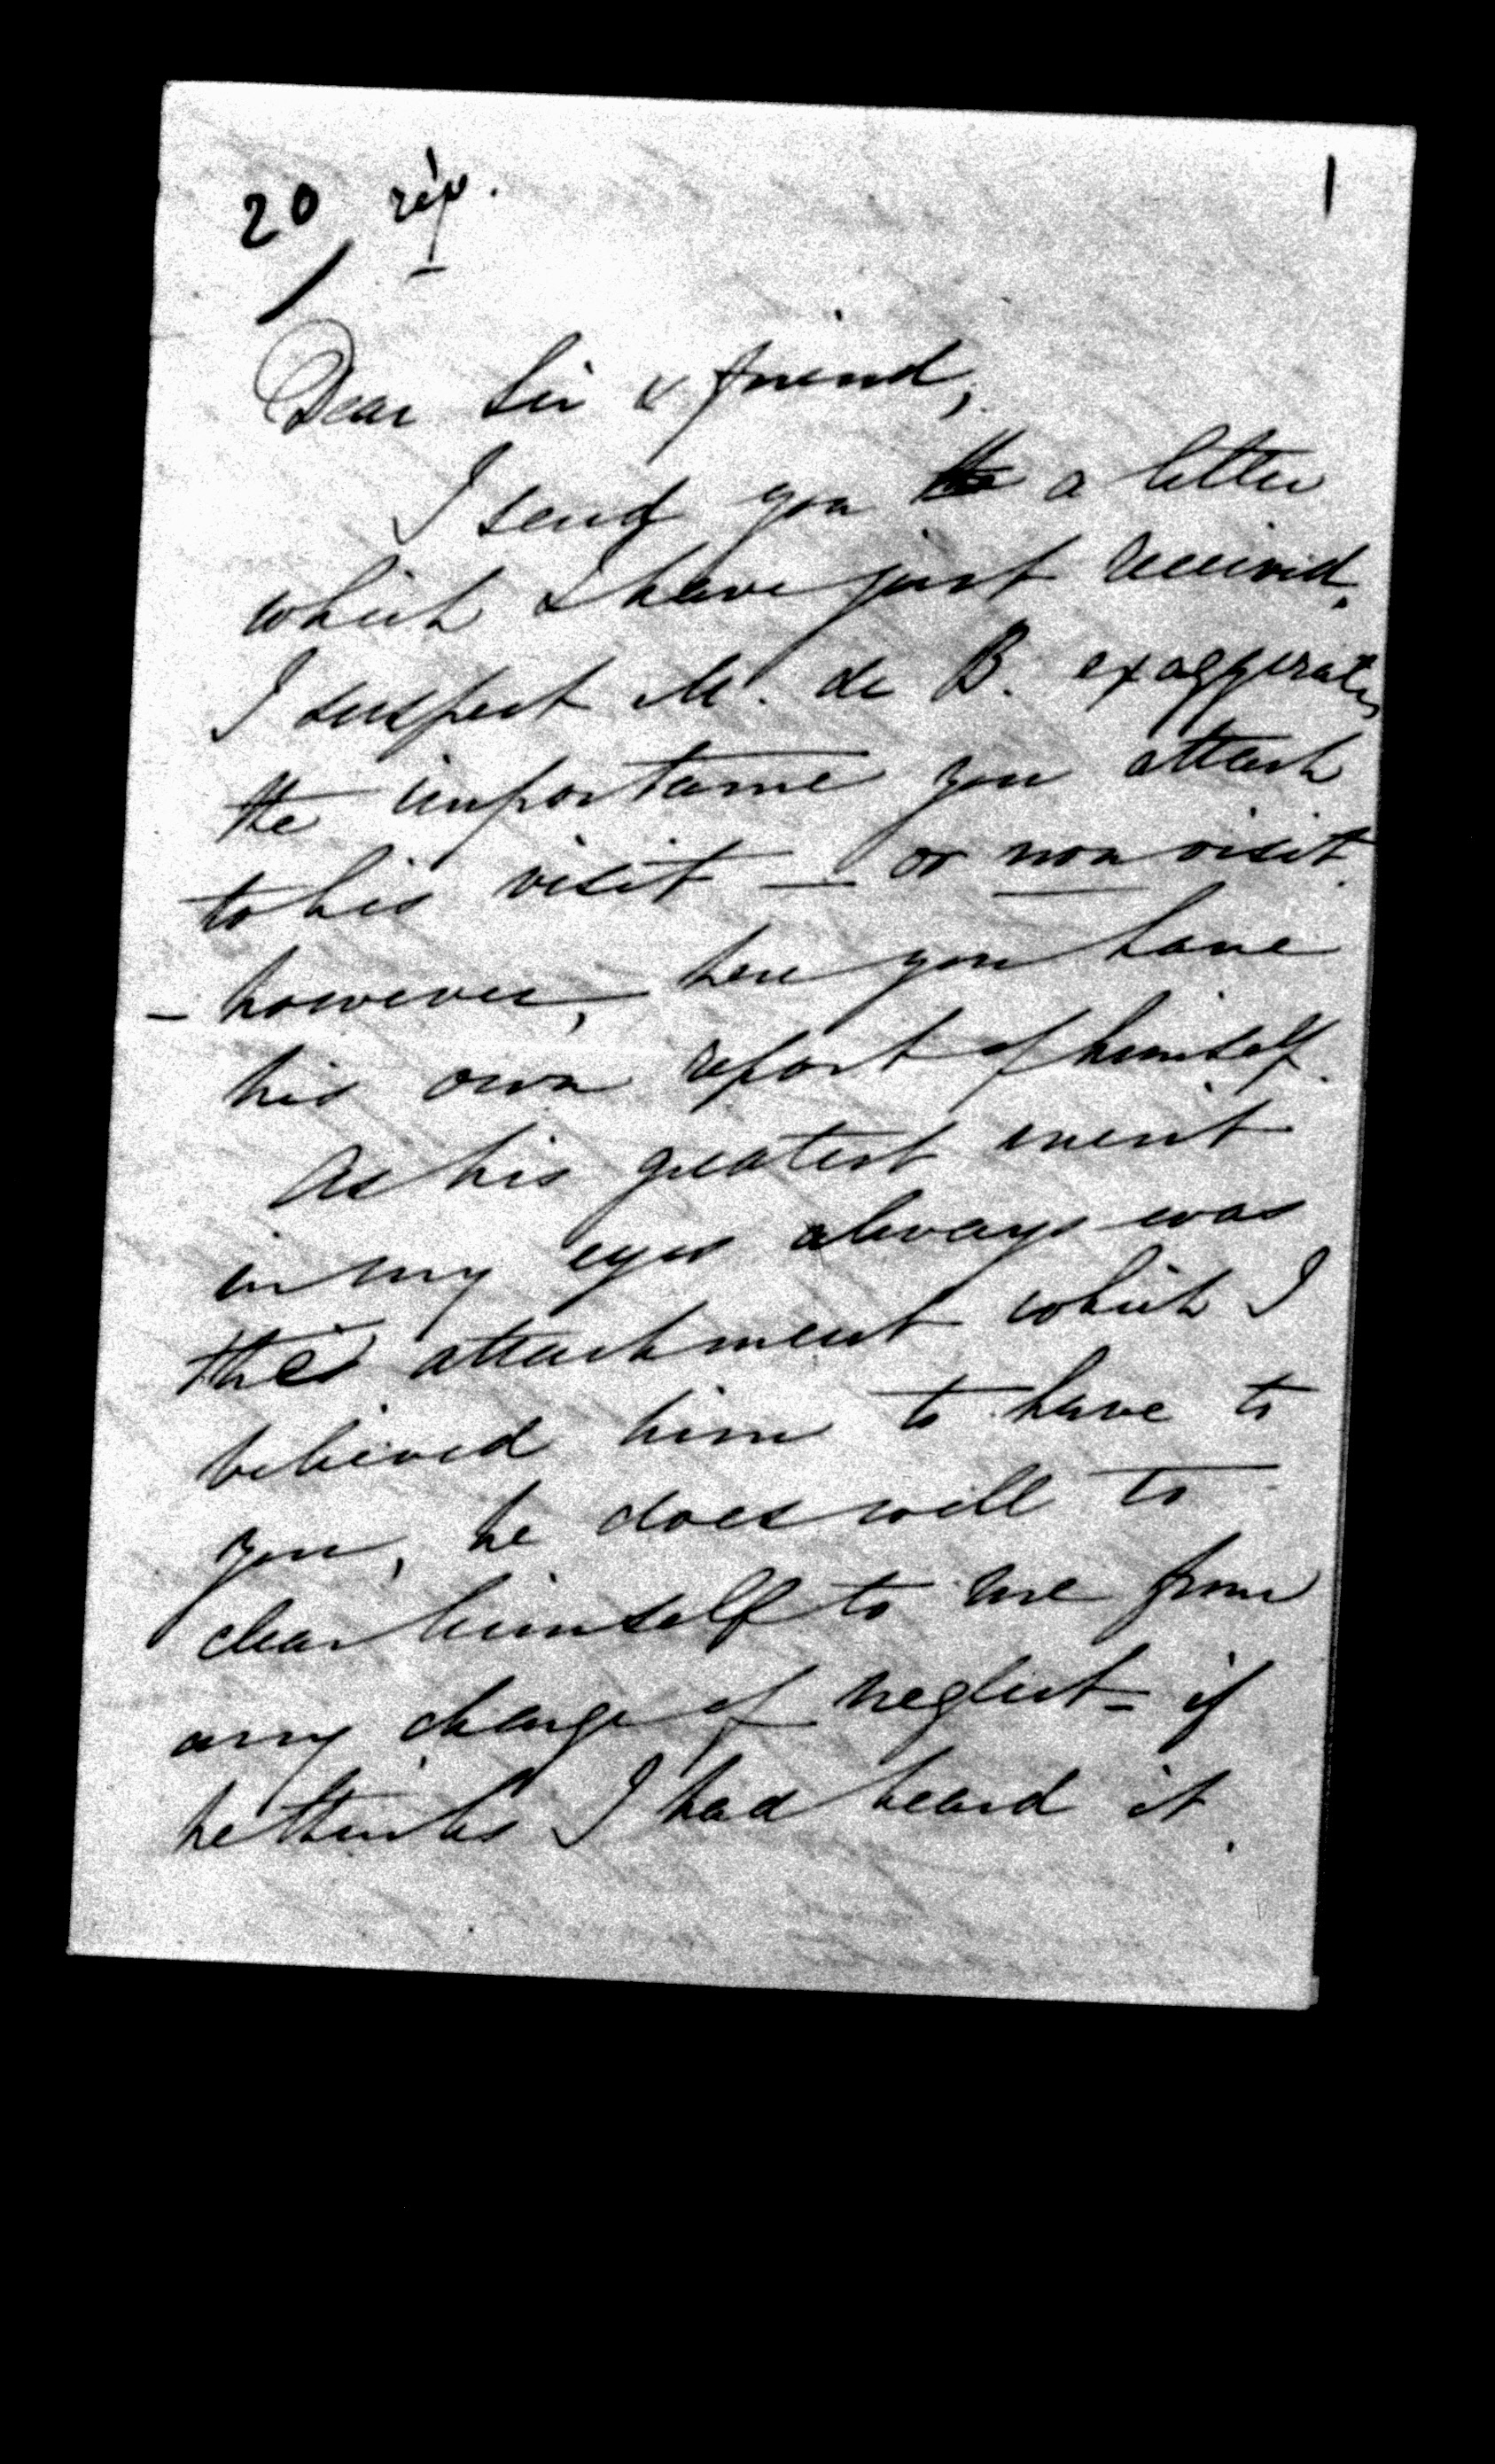 20 rép. 1
Dear Sir & friend,
I send you a letter
which I have just received.
I suspect M. de B. exaggerates
the importance you attach
to his visit — or non visit.
— however, here you have
his own report of himself.
As his greatest merit
in my eyes always was
the attachment which I
believed him to have to
you, he does well to
clear himself to me from
any charge of neglect – if
he thinks I had heard it.